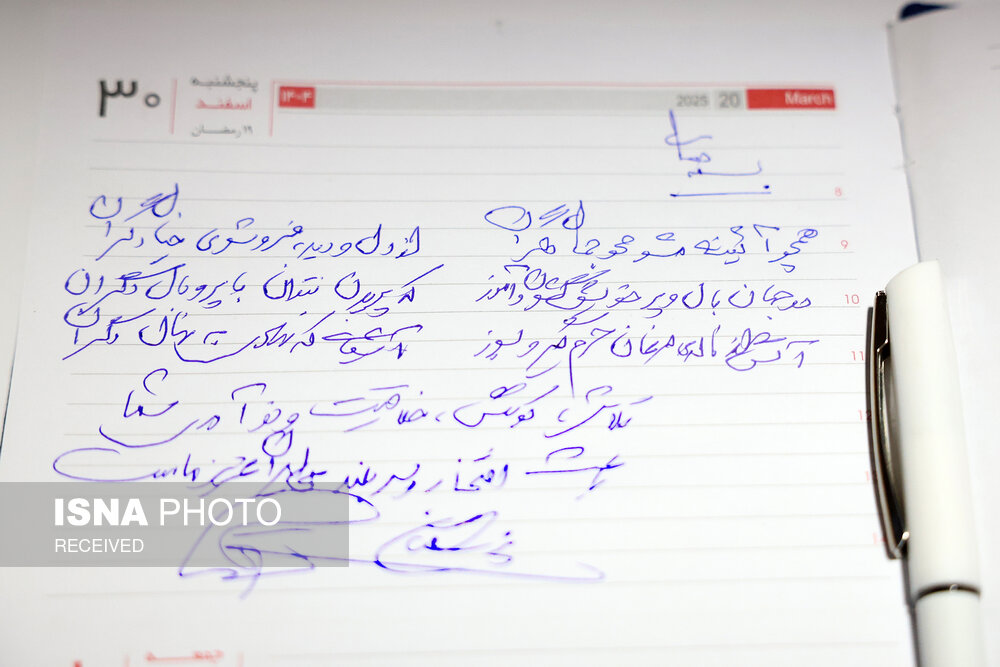 ۳۰ پنجشنبه اسفند ۱۹ رمضان ۱۴۰۳ 2025 20 March
بسمه تعالی
8
همچو آئینه مشو محو جمال دگران از دل و دیده فرو شوی خیال دگران
9
در جهان بال و پر خویش گشودن آموز که پریدن نتوان با پر و بال دگران
10
آتش از ناله‌ی مرغان حرم گیر و بسوز آشیانی که نهادی به نهال دگران
11
تلاش، کوشش، خلاقیت و نوآوری شما
باعث افتخار و سربلندی ایران عزیز ماست
ISNA PHOTO
RECEIVED
جمعه